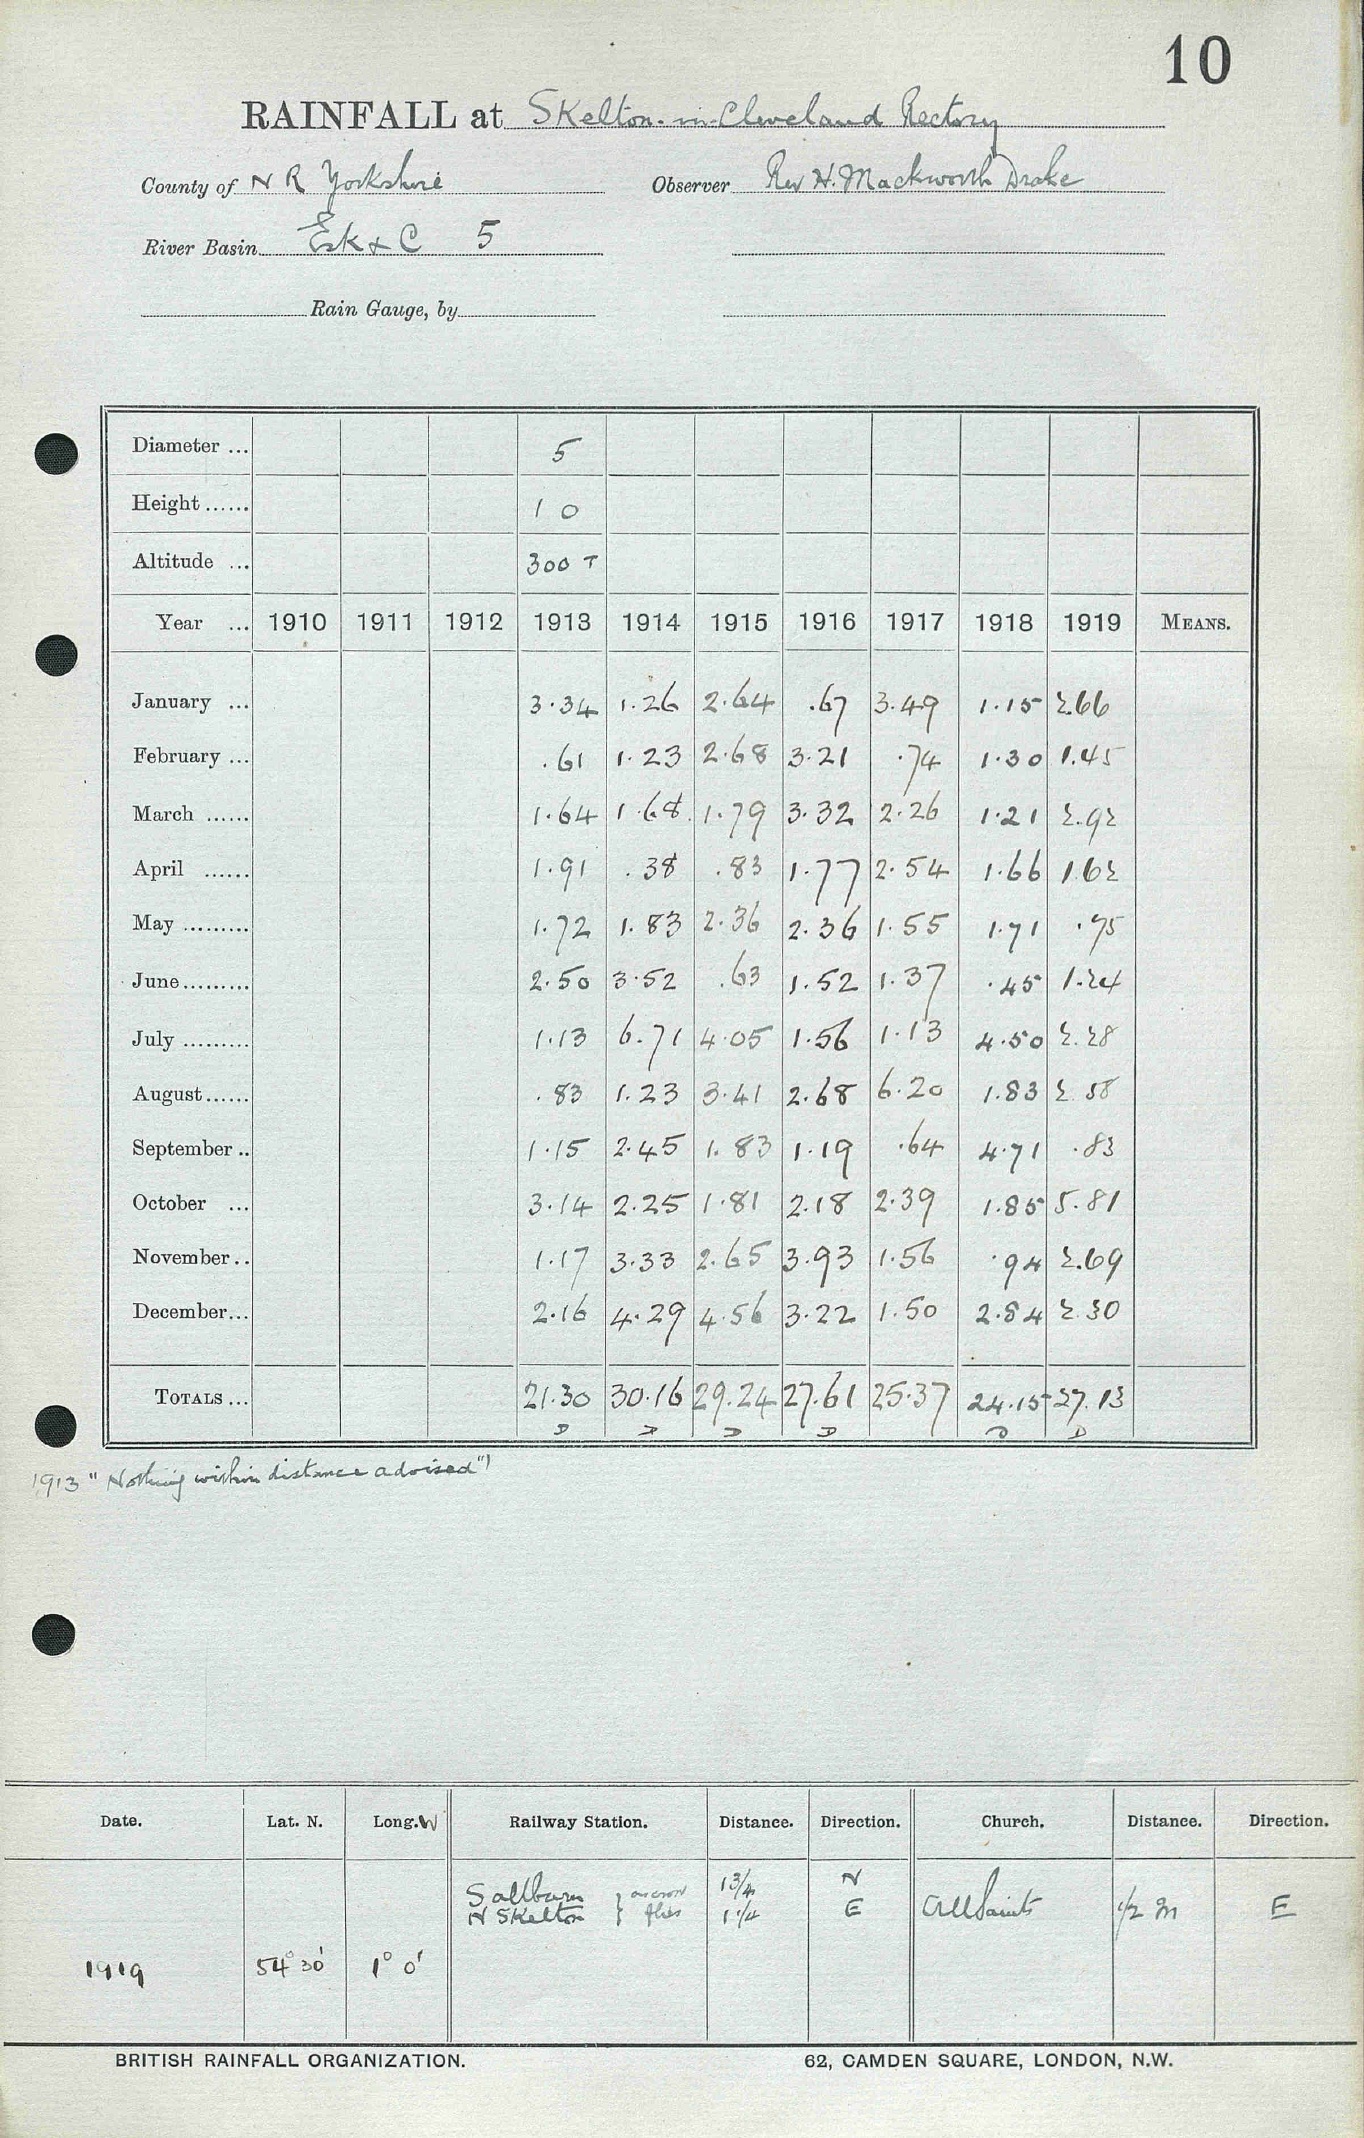 10
RAINFALL at Skelton-in-Cleveland Rectory
County of N R Yorkshire Observer Rev H. Mackworth Drake
River Basin Esk & C 5
Rain Gauge, by
Diameter ... 5
Height ...... 1 0
Altitude ... 300 T
Year ... 1910 1911 1912 1913 1914 1915 1916 1917 1918 1919 MEANS.
January ... 3.34 1.26 2.64 .67 3.49 1.15 2.66
February ... .61 1.23 2.68 3.21 .74 1.30 1.45
March ...... 1.64 1.68 1.79 3.32 2.26 1.21 2.92
April ...... 1.91 .38 .83 1.77 2.54 1.66 1.62
May ......... 1.72 1.83 2.36 2.36 1.55 1.71 .75
June ......... 2.50 3.52 .63 1.52 1.37 .45 1.24
July ......... 1.13 6.71 4.05 1.56 1.13 4.50 2.28
August ...... .83 1.23 3.41 2.68 6.20 1.83 2.58
September .. 1.15 2.45 1.83 1.19 .64 4.71 .83
October ... 3.14 2.25 1.81 2.18 2.39 1.85 5.81
November .. 1.17 3.33 2.65 3.93 1.56 .94 2.69
December ... 2.16 4.29 4.56 3.22 1.50 2.84 2.30
TOTALS ... 21.30 30.16 29.24 27.61 25.37 24.15 27.13
D D D D D D
1913 "Nothing within distance advised"
Date. Lat. N. Long. W Railway Station. Distance. Direction. Church. Distance. Direction.
Saltburn } as crow 1 3/4 N
N Skelton } flies 1 1/4 E All Saints 1/2 m E
1919 54° 30' 1° 0'
BRITISH RAINFALL ORGANIZATION. 62, CAMDEN SQUARE, LONDON, N.W.